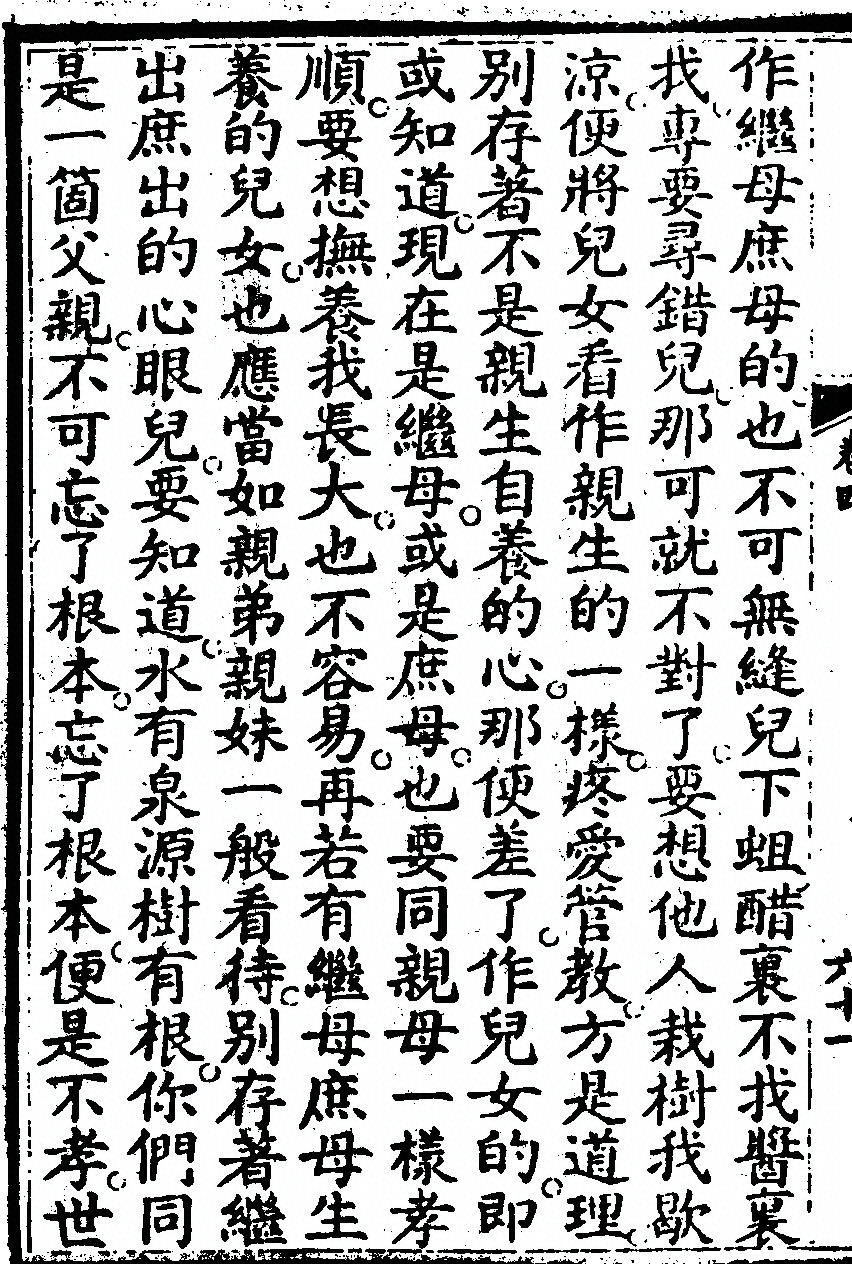 作繼母庶母的也不可無縫兒下蛆醋裏不找醬裏
找專要尋錯兒那可就不對了要想他人栽樹我歇
涼便將兒女看作親生的一樣疼愛管教方是道理
別存著不是親生自養的心那便差了作兒女的即
或知道現在是繼母或是庶母也要同親母一樣孝
順要想撫養我長大也不容易再若有繼母庶母生
養的兒女也應當如親弟親妹一般看待別存著繼
出庶出的心眼兒要知道水有泉源樹有根你們同
是一箇父親不可忘了根本忘了根本便是不孝世
卷四
六十一